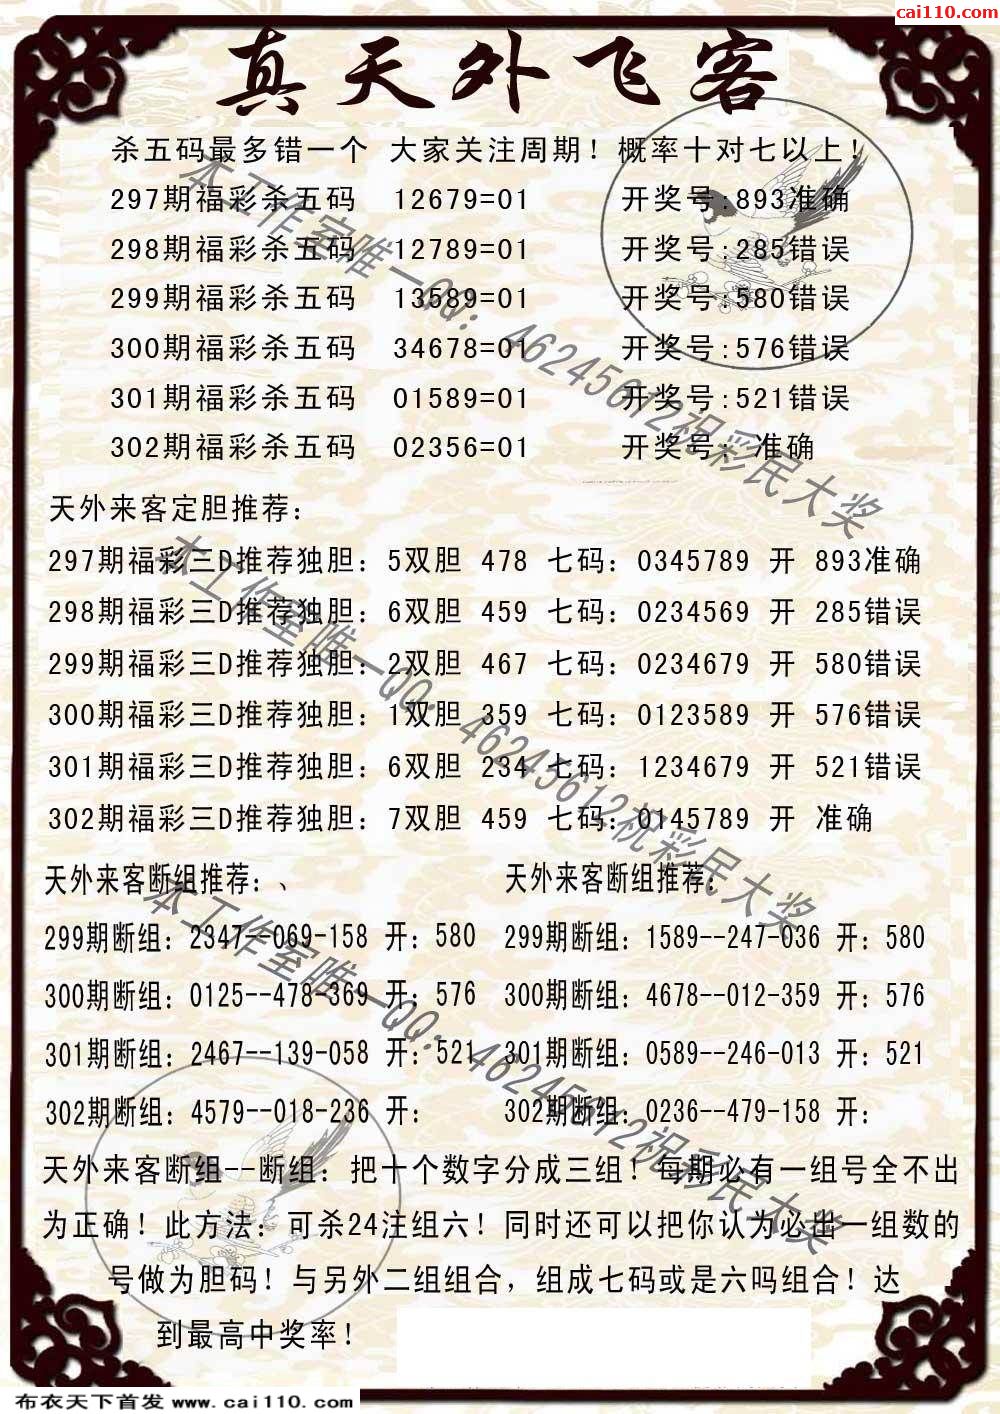 cai110.com
真天外飞客
杀五码最多错一个 大家关注周期！概率十对七以上！
297期福彩杀五码 12679=01 开奖号:893准确
298期福彩杀五码 12789=01 开奖号:285错误
299期福彩杀五码 13589=01 开奖号:580错误
300期福彩杀五码 34678=01 开奖号:576错误
301期福彩杀五码 01589=01 开奖号:521错误
302期福彩杀五码 02356=01 开奖号: 准确
天外来客定胆推荐:
297期福彩三D推荐独胆: 5双胆 478 七码: 0345789 开 893准确
298期福彩三D推荐独胆: 6双胆 459 七码: 0234569 开 285错误
299期福彩三D推荐独胆: 2双胆 467 七码: 0234679 开 580错误
300期福彩三D推荐独胆: 1双胆 359 七码: 0123589 开 576错误
301期福彩三D推荐独胆: 6双胆 234 七码: 1234679 开 521错误
302期福彩三D推荐独胆: 7双胆 459 七码: 0145789 开 准确
天外来客断组推荐: 、 天外来客断组推荐:
299期断组: 2347--069-158 开: 580 299期断组: 1589--247-036 开: 580
300期断组: 0125--478-369 开: 576 300期断组: 4678--012-359 开: 576
301期断组: 2467--139-058 开: 521 301期断组: 0589--246-013 开: 521
302期断组: 4579--018-236 开: 302期断组: 0236--479-158 开:
天外来客断组--断组: 把十个数字分成三组！每期必有一组号全不出
为正确！此方法: 可杀24注组六！同时还可以把你认为必出一组数的
号做为胆码！与另外二组组合，组成七码或是六吗组合！达
到最高中奖率！
本工作室唯一QQ: 46245612祝彩民大奖
本工作室唯一QQ: 46245612祝彩民大奖
本工作室唯一QQ: 46245612祝彩民大奖
布衣天下首发 www.cai110.com